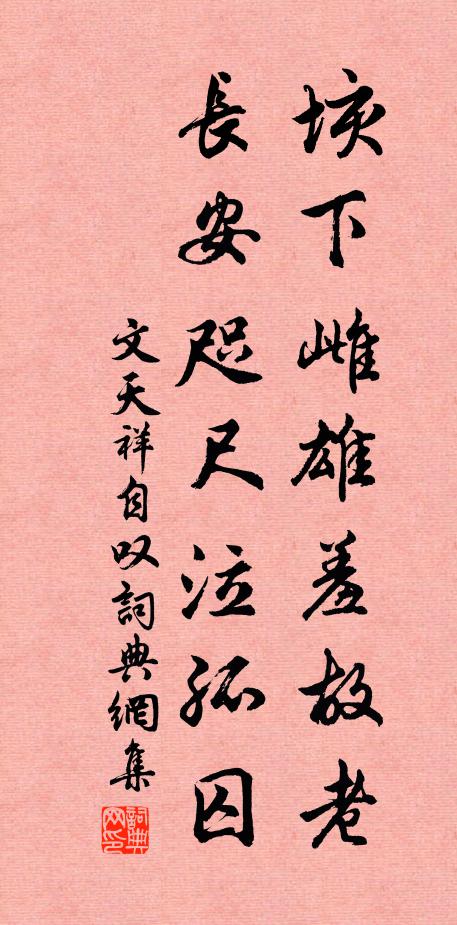 垓下雌雄羞故老
長安咫尺泣孤囚
文天祥自叹詞典網集
詞典网印